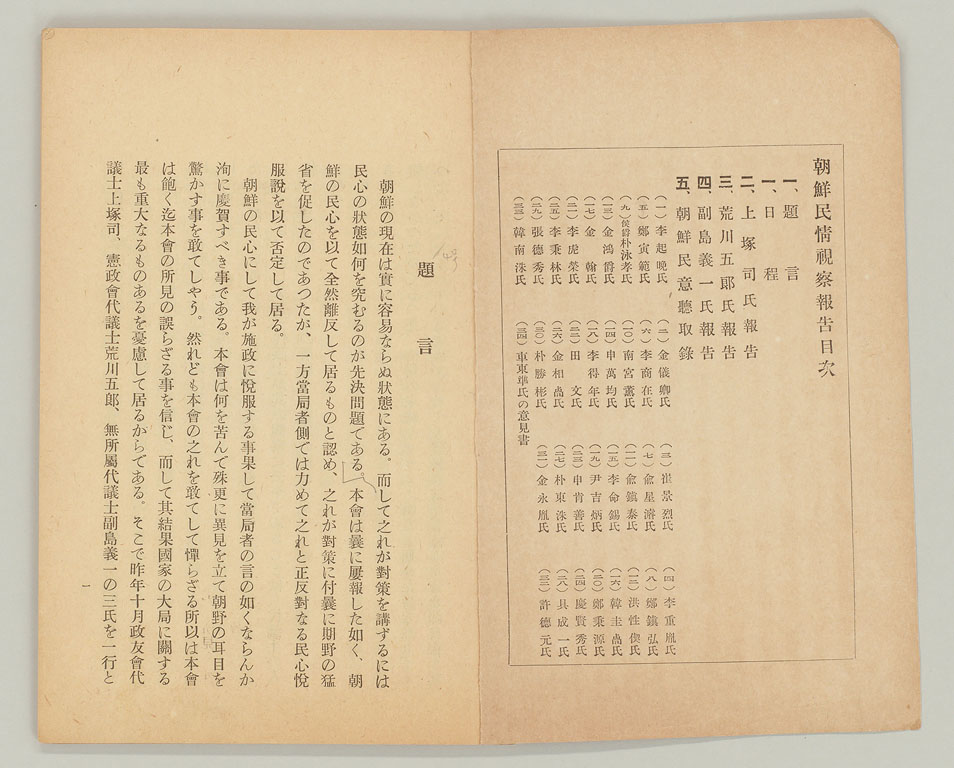 朝鮮民情視察報告目次
一、題言
一、日程
二、上塚司氏報告
三、荒川五郎氏報告
四、副島義一氏報告
五、朝鮮民意聽取錄
(一)李起晩氏 (二)金儀卿氏 (三)崔景烈氏 (四)李重胤氏
(五)鄭寅範氏 (六)李商在氏 (七)兪星濬氏 (八)鄭鎭弘氏
(九)侯爵朴泳孝氏 (一〇)南宮薰氏 (一一)兪鎭泰氏 (一二)洪性偰氏
(一三)金鴻爵氏 (一四)申萬均氏 (一五)李命錫氏 (一六)韓圭卨氏
(一七)金翰氏 (一八)李得年氏 (一九)尹吉炳氏 (二〇)鄭秉源氏
(二一)李虎榮氏 (二二)田文氏 (二三)申肯善氏 (二四)慶賢秀氏
(二五)李秉林氏 (二六)金相卨氏 (二七)朴東洙氏 (二八)具成一氏
(二九)張德秀氏 (三〇)朴勝彬氏 (三一)金永胤氏 (三二)許德元氏
(三三)韓南洙氏 (三四)車東準氏の意見書
題言
朝鮮の現在は實に容易ならぬ狀態にある。而して之れが對策を講ずるには
民心の狀態如何を究むるのが先決問題である。本會は曩に屢報した如く、朝
鮮の民心を以て全然離反して居るものと認め、之れが對策に付曩に期野の猛
省を促したのであつたが、一方當局者側では力めて之れと正反對なる民心悅
服說を以て否定して居る。
朝鮮の民心にして我が施政に悅服する事果して當局者の言の如くならんか
洵に慶賀すべき事である。本會は何を苦んで殊更に異見を立て朝野の耳目を
驚かす事を敢てしやう。然れども本會の之れを敢てして憚らざる所以は本會
は飽く迄本會の所見の誤らざる事を信じ、而して其結果國家の大局に關する
最も重大なるものあるを憂慮して居るからである。そこで昨年十月政友會代
議士上塚司、憲政會代議士荒川五郎、無所屬代議士副島義一の三氏を一行と
一